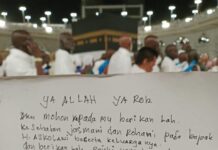 YA ALLAH YA ROB
Aku mohon kepada mu berikan lah
kesehatan jasmani dan rohani pada bapak
H. ASKOLANI beserta keluarga nya
dan berikan lah